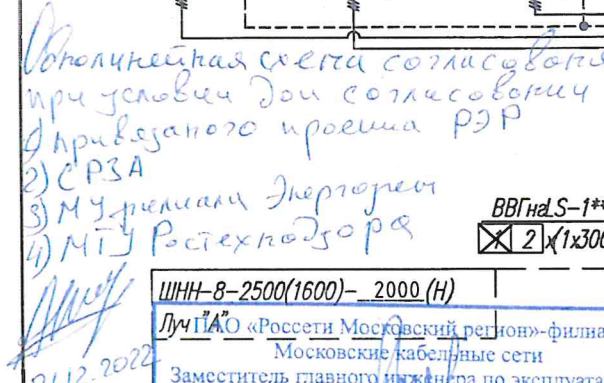 Однолинейная схема согласована
при условии доп согласований
1) привязаного проекта РЭР
2) СРЗА
3) МУ филиала Энергоучет
4) МТУ Ростехнадзора
ВВГнгLS-1**
1 2 x(1x300
ШНН-8-2500(1600)- 2000 (Н)
Луч "А"
ПАО «Россети Московский регион»-филиа
Московские кабельные сети
Заместитель главного инженера по эксплуата
21.12.2022